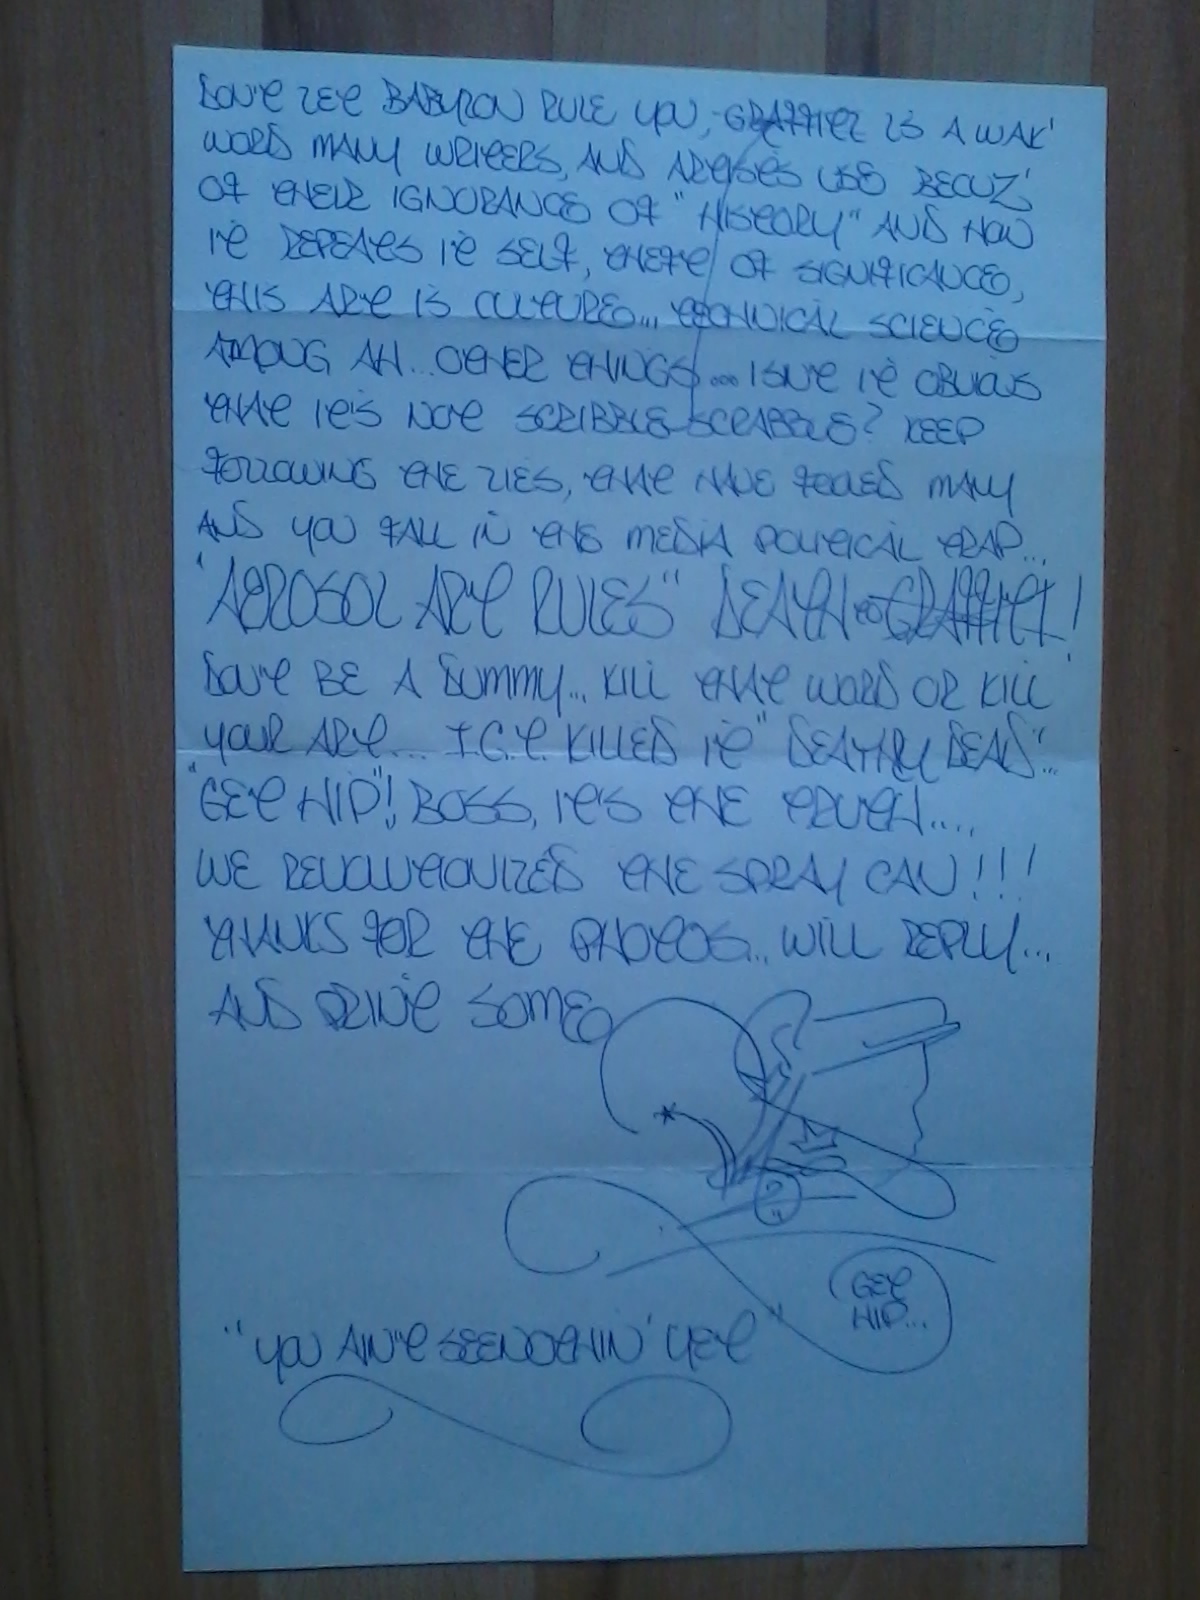 DON'T LET BABYLON RULE YOU, GRAFFITI IS A WAK'
WORD MANY WRITERS, AND ARTISTS USE BECUZ'
OF THEIR IGNORANCE OF "HISTORY" AND HOW
IT REPEATS IT SELF, THEFT OF SIGNIFICANCE,
THIS ART IS CULTURE... TECHNICAL SCIENCE
AMONG AH... OTHER THINGS... ISNT IT OBVIOUS
THAT IT'S NOT SCRIBBLE-SCRABBLE? KEEP
FOLLOWING THE LIES, THAT HAVE FOOLED MANY
AND YOU FALL IN THE MEDIA POLITICAL TRAP...
"AEROSOL ART RULES" DEATH TO GRAFFITI!
DON'T BE A DUMMY... KILL THAT WORD OR KILL
YOUR ART... I.G.T. KILLED IT "DEATHLY DEAD"...
"GET HIP"! BOSS, IT'S THE TRUTH....
WE REVOLUTIONIZED THE SPRAY CAN!!!
THANKS FOR THE PHOTOS.. WILL REPLY...
AND PRINT SOME
GET
HIP...
"YOU AIN'T SEENOTHIN' YET"